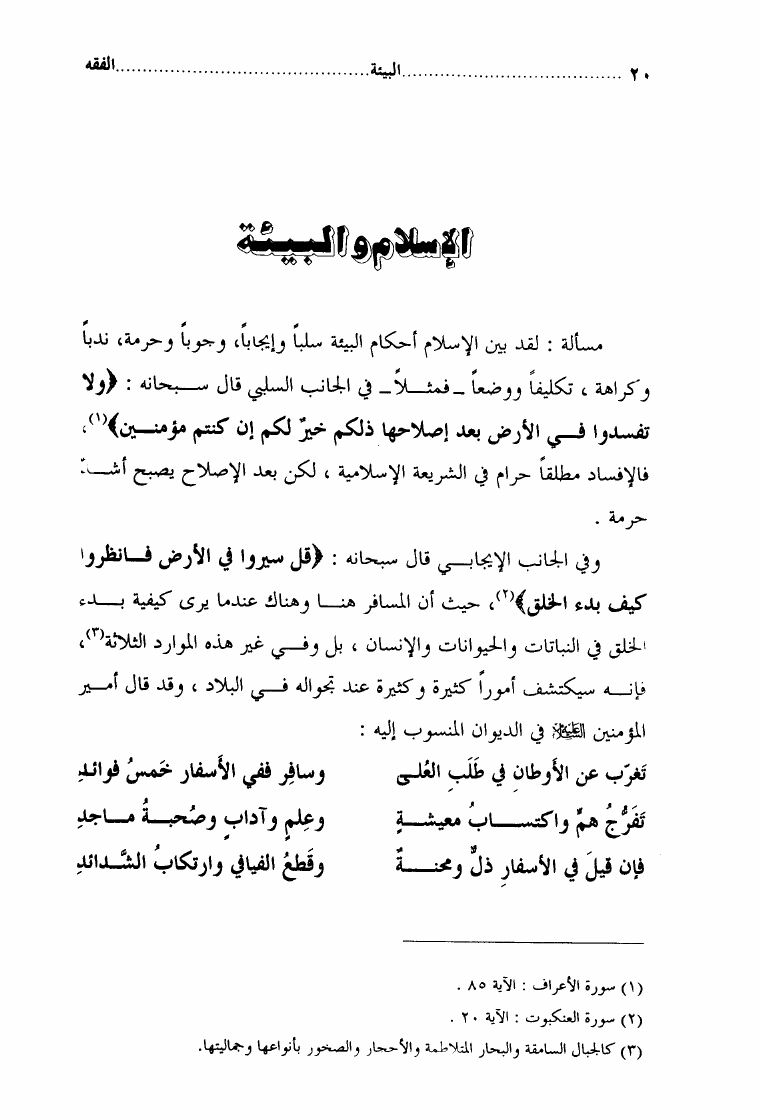 ٢٠ ........................................ البيئة ........................................ الفقه
الإسلام والبيئة
مسألة : لقد بين الإسلام أحكام البيئة سلباً وإيجاباً، وجوباً وحرمة، ندباً
وكراهة ، تكليفاً ووضعاً ـ فمثـلاً ـ في الجانب السلبي قال سـبحانه : ﴿ولا
تفسدوا فـي الأرض بعد إصلاحها ذلكم خيرٌ لكم إن كنتم مؤمنـين﴾(١)،
فالإفساد مطلقاً حرام في الشريعة الإسلامية ، لكن بعد الإصلاح يصبح أشـدّ
حرمة .
وفي الجانب الإيجابـي قال سبحانه : ﴿قل سيروا في الأرض فـانظروا
كيف بدء الخلق﴾(٢)، حيث أن المسافر هنـا وهناك عندما يرى كيفية بـدء
الخلق في النباتات والحيوانات والإنسان ، بل وفـي غير هذه الموارد الثلاثة(٣)،
فإنـه سيكتشف أموراً كثيرة وكثيرة عند تجواله فـي البلاد ، وقد قال أمـير
المؤمنين عليه السلام في الديوان المنسوب إليه :
تَغرّب عن الأوطانِ في طَلَبِ العُلـى وسافِر ففي الأسفار خَمسُ فوائـدِ
تَفَرُّجُ همٍّ واكتسـابُ معيشـةٍ وعِلمٍ وآدابٍ وصُحبـةُ مـاجدِ
فإن قيلَ في الأسفارِ ذلٌّ ومحنـةٌ وقَطعُ الفيافي وارتكابُ الشَّدائدِ
(١) سورة الأعراف : الآية ٨٥ .
(٢) سورة العنكبوت : الآية ٢٠ .
(٣) كالجبال السامقة والبحار المتلاطمة والأحجار والصخور بأنواعها وجماليتها.